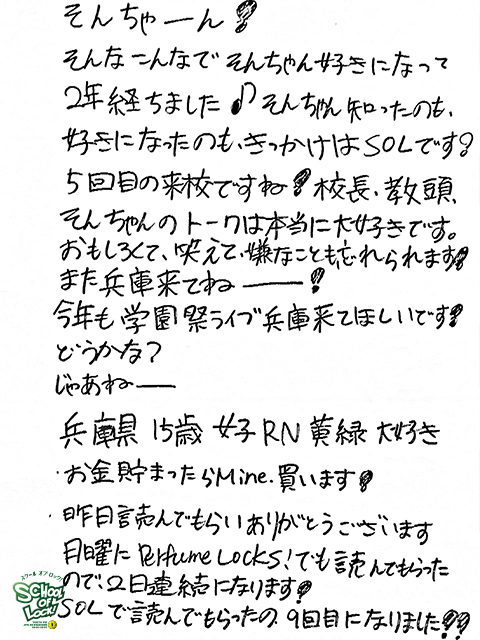 そんちゃーん!
そんなこんなでそんちゃん好きになって
2年経ちました♪そんちゃん知ったのも、
好きになったのも、きっかけはSOLです!
5回目の来校ですね!校長、教頭、
そんちゃんのトークは本当に大好きです。
おもしろくて、笑えて、嫌なことも忘れられます!
また兵庫来てねー!
今年も学園祭ライブ兵庫来てほしいです!
どうかな?
じゃあねー
兵庫県 15歳 女子 RN 黄緑大好き
・お金貯まったらMine.買います!
・昨日読んでもらいありがとうございます
日曜にPerfume LOCKS!でも読んでもらった
ので、2日連続になります!
SOLで読んでもらったの、9回目になりました!!
スクール オブ ロック!
SCHOOL
OF
LOCK!